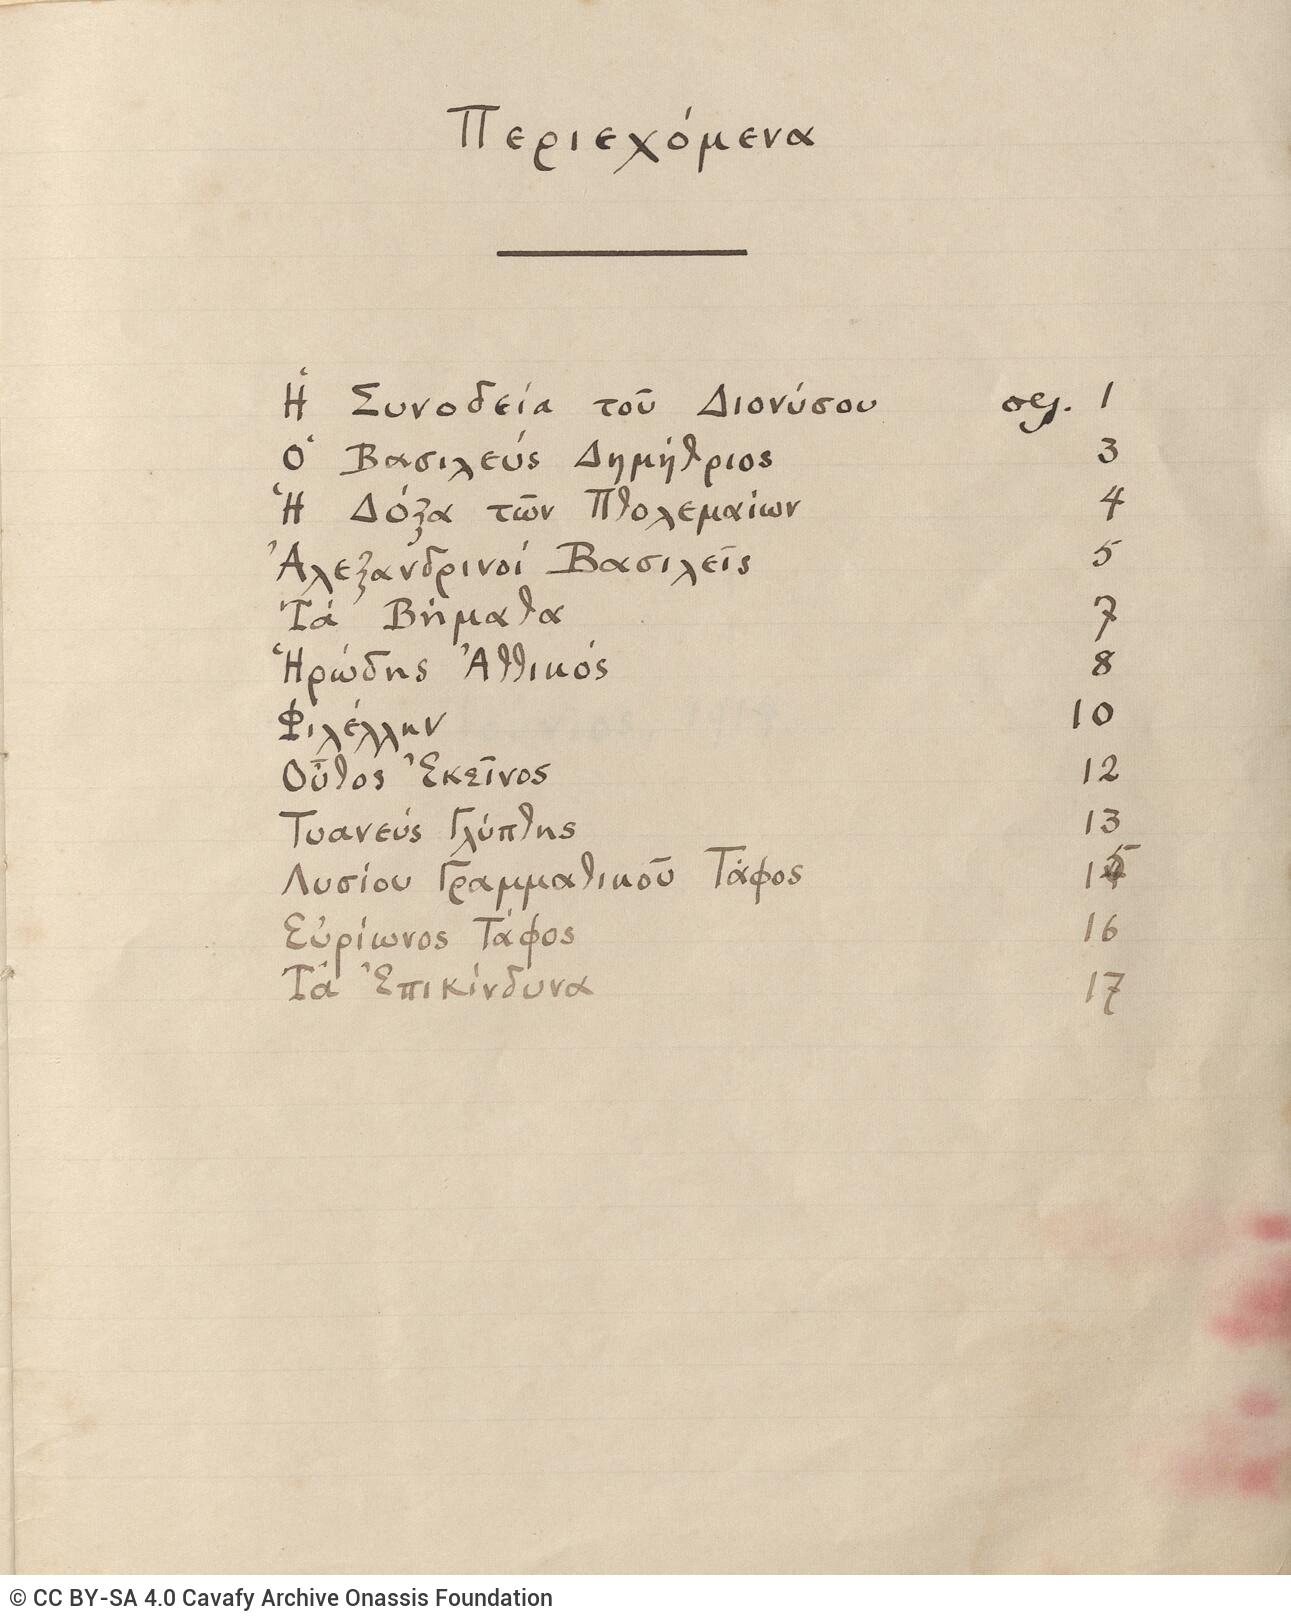 Περιεχόμενα
Ἡ Συνοδεία τοῦ Διονύσου σελ. 1
Ὁ Βασιλεύς Δημήτριος 3
Ἡ Δόξα τῶν Πτολεμαίων 4
Ἀλεξανδρινοί Βασιλεῖς 5
Τά Βήματα 7
Ἡρώδης Ἀττικός 8
Φιλέλλην 10
Οὗτος Ἐκεῖνος 12
Τυανεύς Γλύπτης 13
Λυσίου Γραμματικοῦ Τάφος 15
Εὐρίωνος Τάφος 16
Τά Ἐπικίνδυνα 17
© CC BY-SA 4.0 Cavafy Archive Onassis Foundation